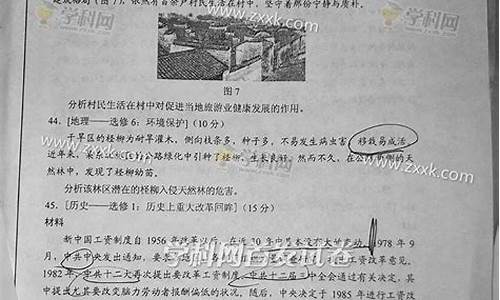 建成格局(图7),依然有百余户村民生活在村中,坚守着那份宁静与质朴。
学科网
www.zxxk.com
学科网
www.zxxk.com
图7
分析村民生活在村中对促进当地旅游业健康发展的作用。
44. [地理——选修6:环境保护] (10分)
干旱区的柽柳为耐旱灌木,侧向枝条多,种子多,不易发生病虫害,移栽易成活
近年来,某东部林区公路绿化中引种了柽柳,生长良好。然而不久,在公路两侧的天
然林中,发现了柽柳幼苗。
www.zxxk.com
学科网
www.zxxk.com
分析该林区潜在的柽柳入侵天然林的危害。
45. [历史——选修1:历史上重大改革回眸] (15分)
材料
新中国工资制度自1956年改革以后,在近30年中基本没有大的变动。1978年9
月,中共中央发出通知,要
工资改革意见。
1982年,中共十二大再次提出要改革工资制度,中共十二届三中全会通过有关决定,其
中提出尤其要改变脑力劳动者报酬偏低的状况,随后,中央决定于1985年进行工资改
学科网首发试卷